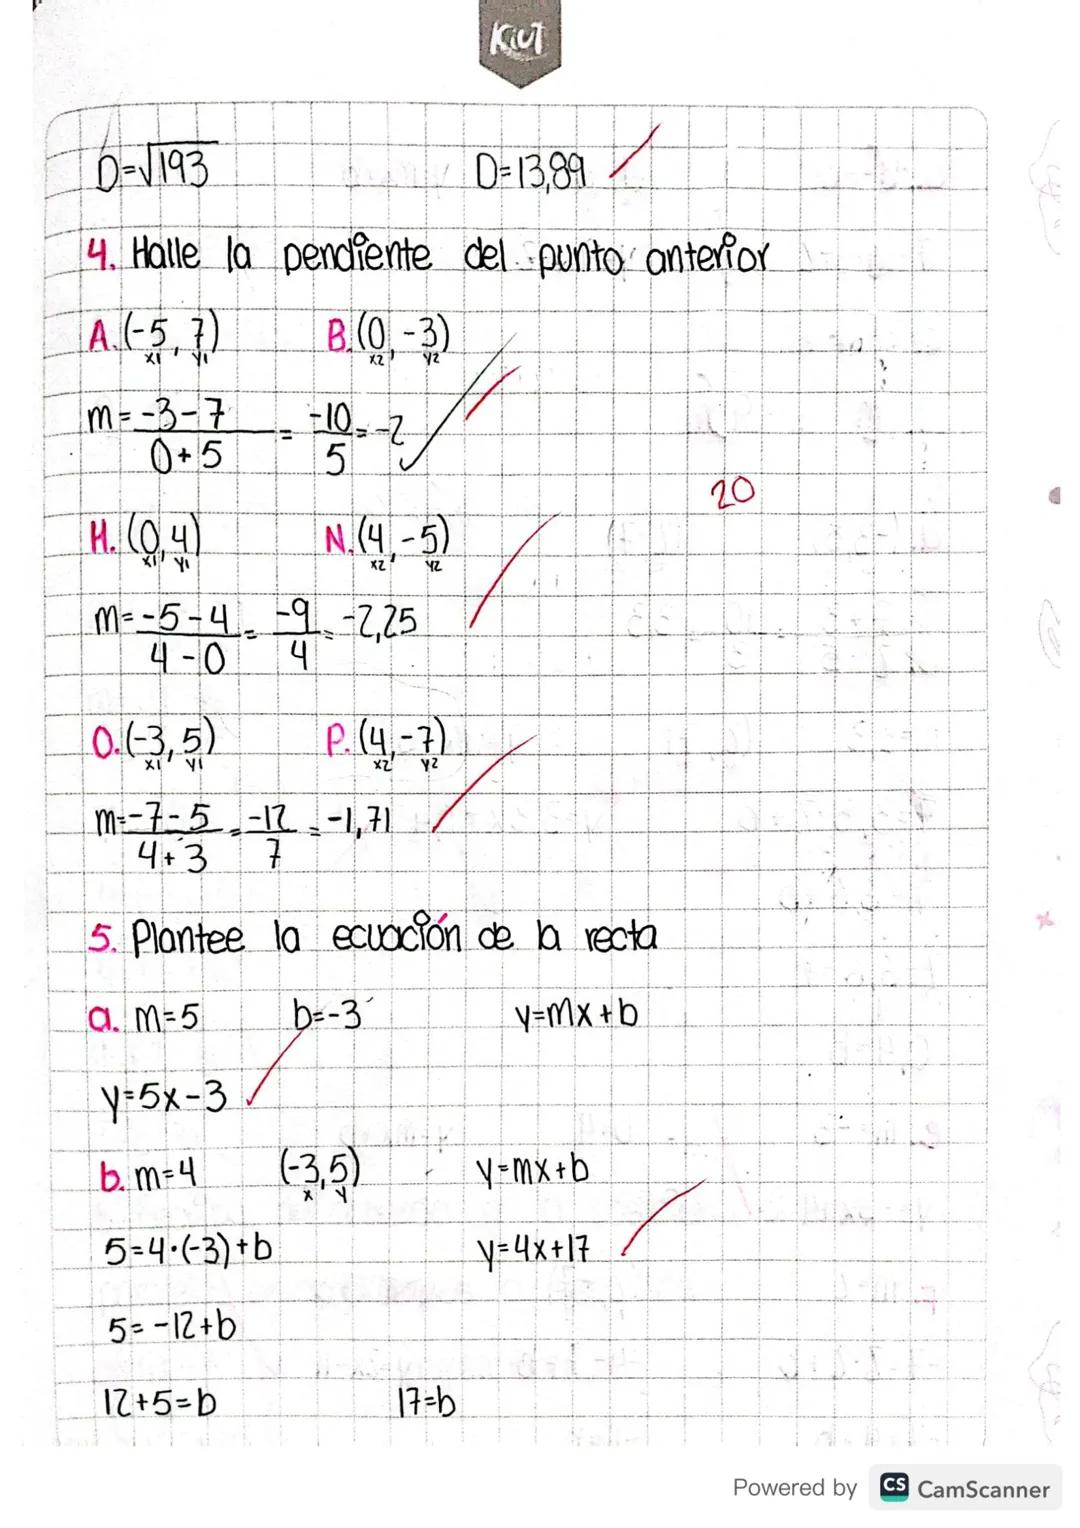 Kiut
D=√193 D=13,89
4. Halle la pendiente del punto anterior
A. (-5, 7) B. (0, -3)
x1 y1 x2 y2
m= -3-7 = -10 = -2
0+5 5
20
H. (0,4) N. (4,-5)
x1 y1 x2 y2
m= -5-4 = -9 = -2,25
4-0 4
O. (-3, 5) P. (4,-7)
x1 y1 x2 y2
m= -7-5 = -12 = -1,71
4+3 7
5. Plantee la ecuación de la recta
a. m=5 b=-3 y=mx+b
y=5x-3
b. m=4 (-3,5) y=mx+b
x y
5=4·(-3)+b y=4x+17
5=-12+b
12+5=b 17=b
Powered by CS CamScanner